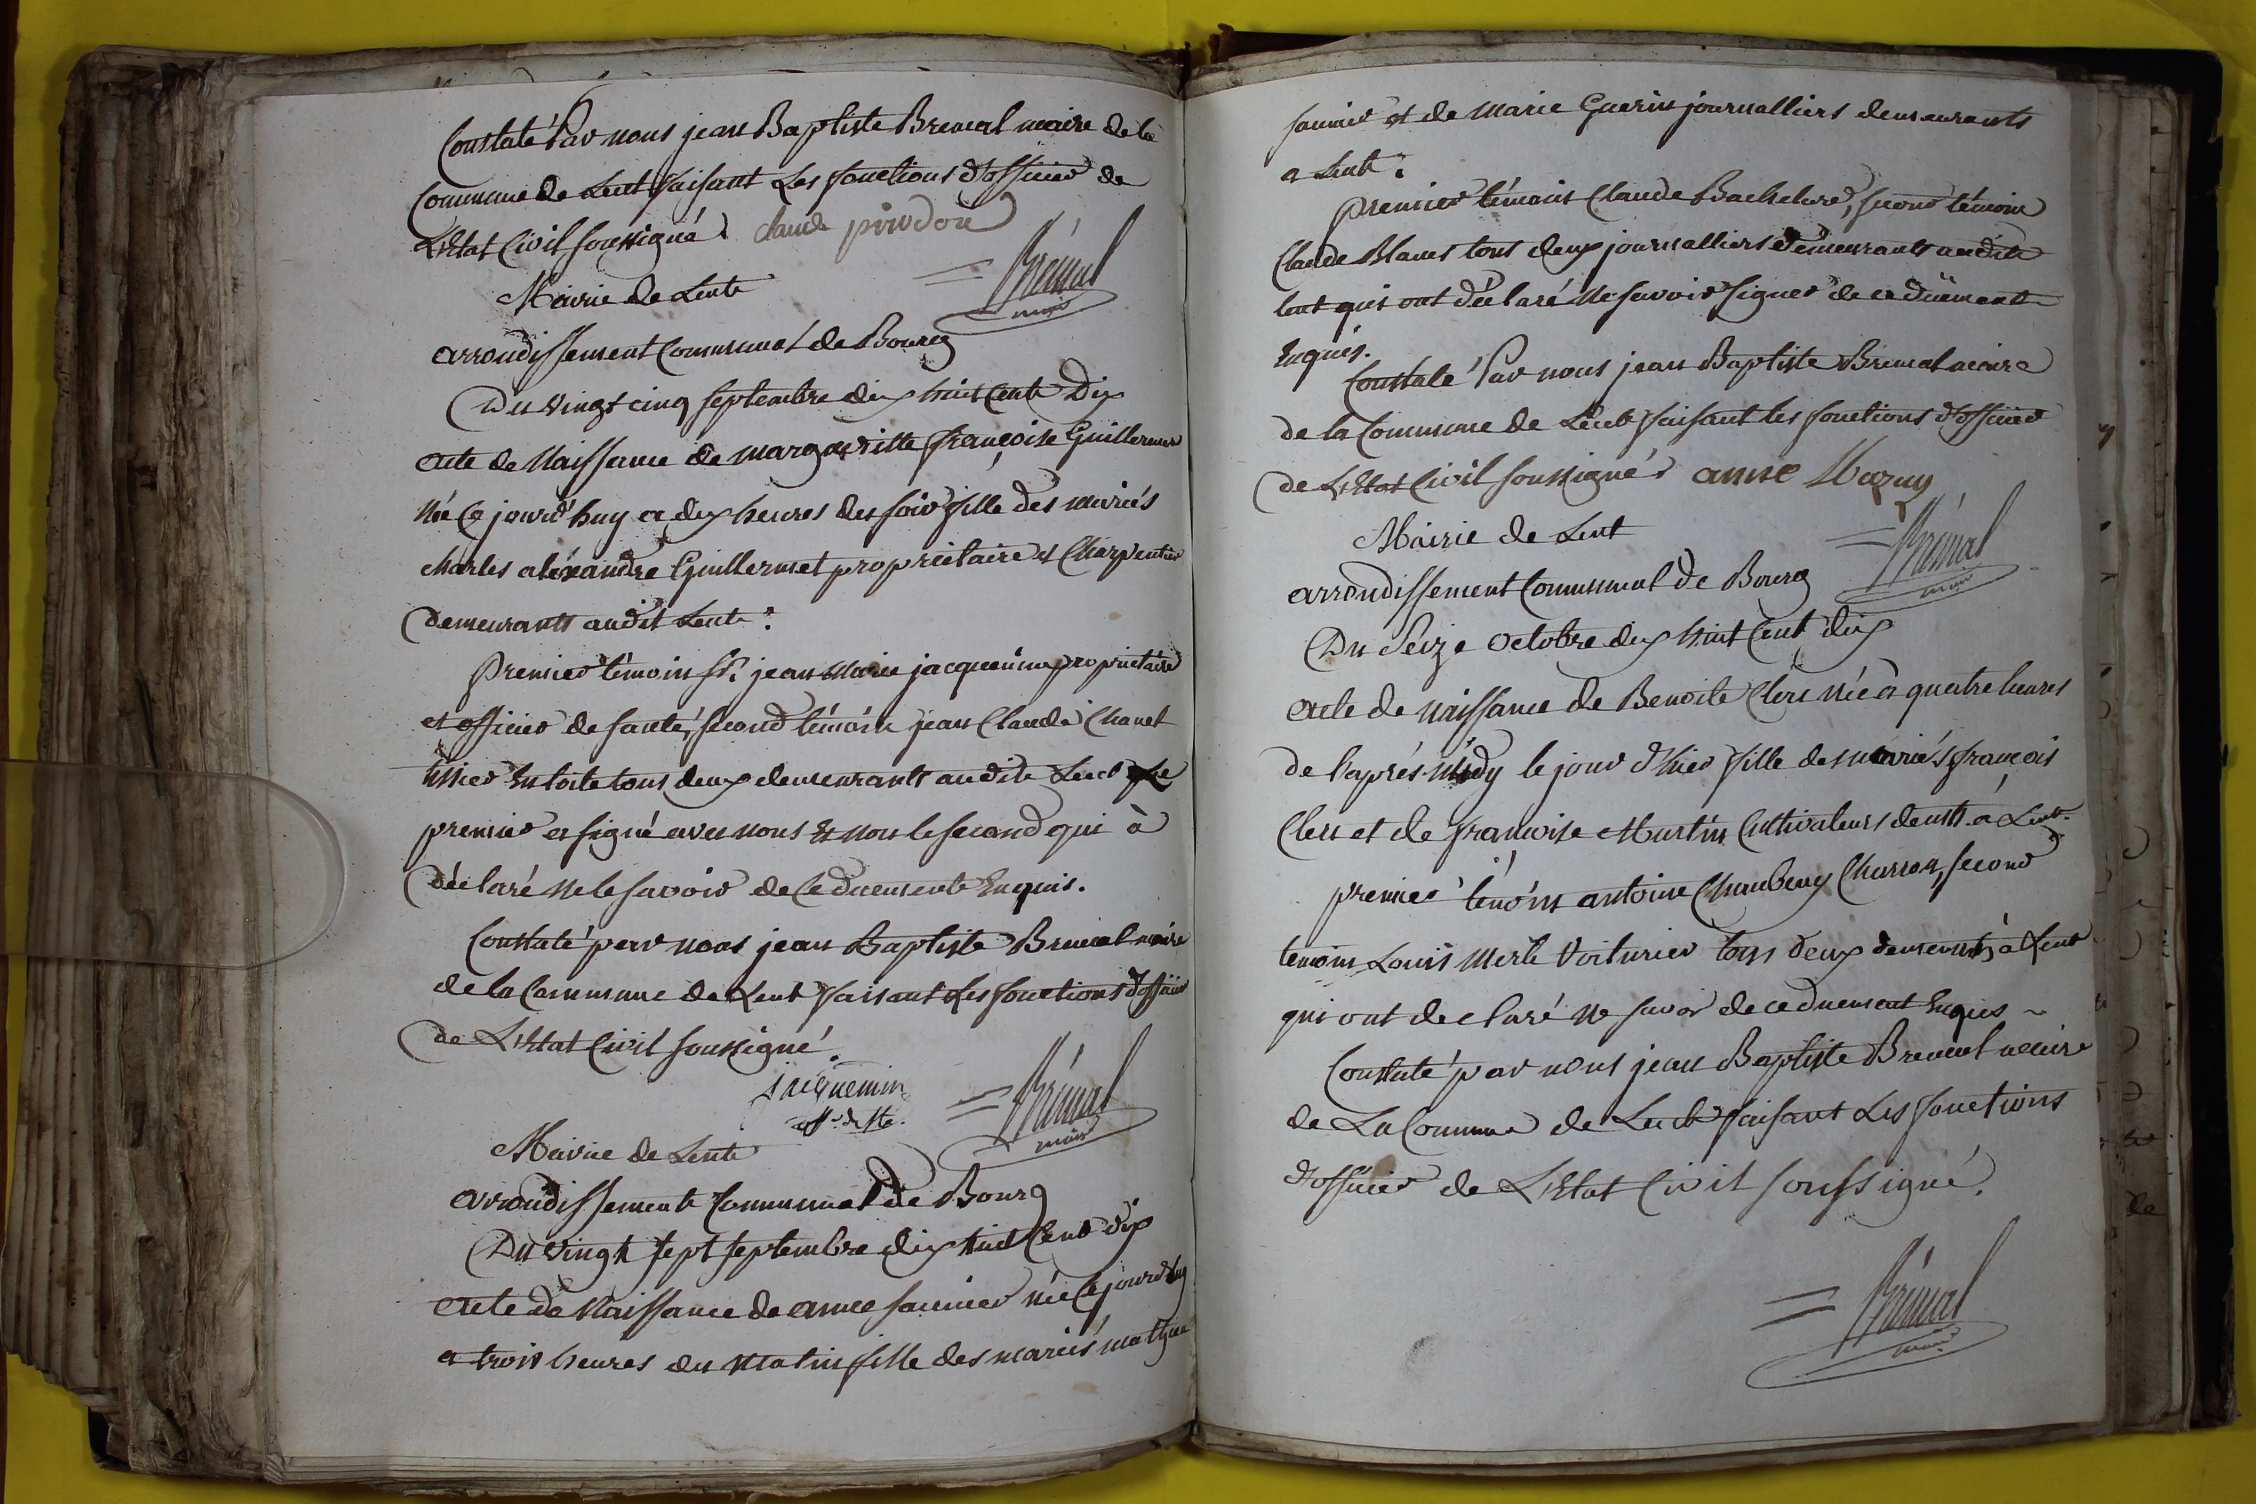 Constaté Par nous jean Baptiste Bremal maire de la
Commune de Lent faisant Les fonctions d'officier de
L'Etat Civil soussigné. claude
Brémal
maire
Mairie de Lent
arrondissement Communal de Bourg
Du vingt cinq septembre dix huit Cent Dix
acte de Naissance de margueritte françoise Guillermet
Née Ce jourd'huy a dix heures du soir fille des mariés
charles aléxandre Guillermet proprietaire et Charpentier
demeurants audit Lent :
Premier témoin Sr. jean marie jacquemin proprietaire
et officier de santé, second témoin jean Claude Chanel
tissier En toile tous deux demeurants audit Lent Le
premier a signé avec nous Et non le second qui à
déclaré Ne le savoir de Ce duement Enquis.
Constaté par nous jean Baptiste Bremal maire
de la Commune de Lent faisant Les fonctions d'officier
de L'Etat Civil soussigné.
jacquemin
off. de Sté.
Brémal
maire
Mairie de Lent
arrondissement Communal de Bourg
Du vingt sept septembre dix huit Cent dix
acte de Naissance de anne saunier née Ce jourd'huy
a trois heures du matin fille des mariés
saunier et de Marie Guerin journalliers demeurants
a Lent :
Premier témoin Claude Bachelard, second témoin
Claude Blanc tous deux journalliers demeurants audit
Lent qui ont déclaré Ne savoir signer de ce duëment
Enquis.
Constaté Par nous jean Baptiste Bremal maire
de la Commune de Lent faisant les fonctions d'officier
de L'Etat Civil soussigné anne
Brémal
maire
Mairie de Lent
arrondissement Communal de Bourg
Du Seize octobre dix huit Cent dix
acte de naissance de Benoite Clerc née à quatre heures
de l'aprés midy le jour d'hier fille des mariés françois
Clerc et de françoise Martin Cultivateurs demts. à Lent.
premier témoin antoine Charron, second
temoin Louis Merle Voiturier tous deux demeurants à Lent
qui ont declaré Ne savoir de ce duement Enquis ~
Constaté par nous jean Baptiste Bremal maire
de La Commune de Lent faisant Les fonctions
d'officier de L'Etat Civil soussigné.
Brémal
maire